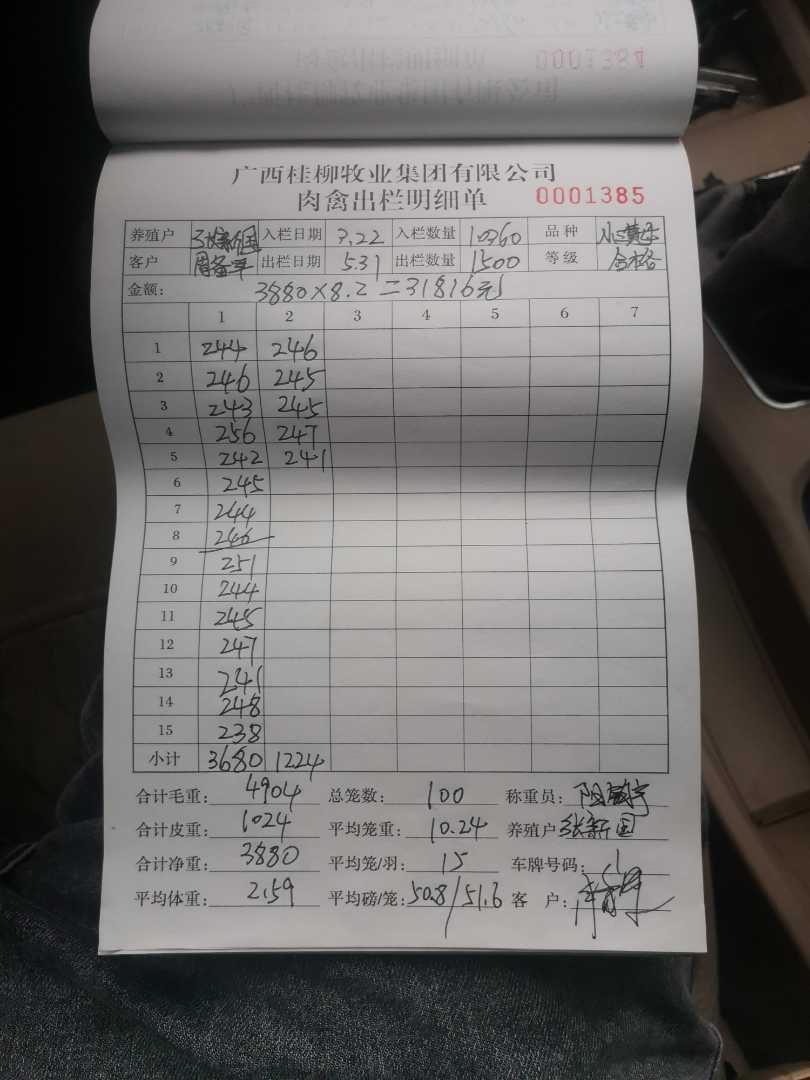 0001384
广西桂柳牧业集团有限公司
肉禽出栏明细单 0001385
养殖户 张新国 入栏日期 3.22 入栏数量 10360 品种
客户 出栏日期 5.31 出栏数量 1500 等级 合格
金额: 3880×8.2=31816元
1 2 3 4 5 6 7
1 244 246
2 246 245
3 243 245
4 256 247
5 242 241
6 245
7 244
8 246
9 251
10 244
11 245
12 247
13 241
14 248
15 238
小计 3680 1224
合计毛重: 4904 总笼数: 100 称重员:
合计皮重: 1024 平均笼重: 10.24 养殖户 张新国
合计净重: 3880 平均笼/羽: 15 车牌号码:
平均体重: 2.59 平均磅/笼: 50.8/51.6 客 户: